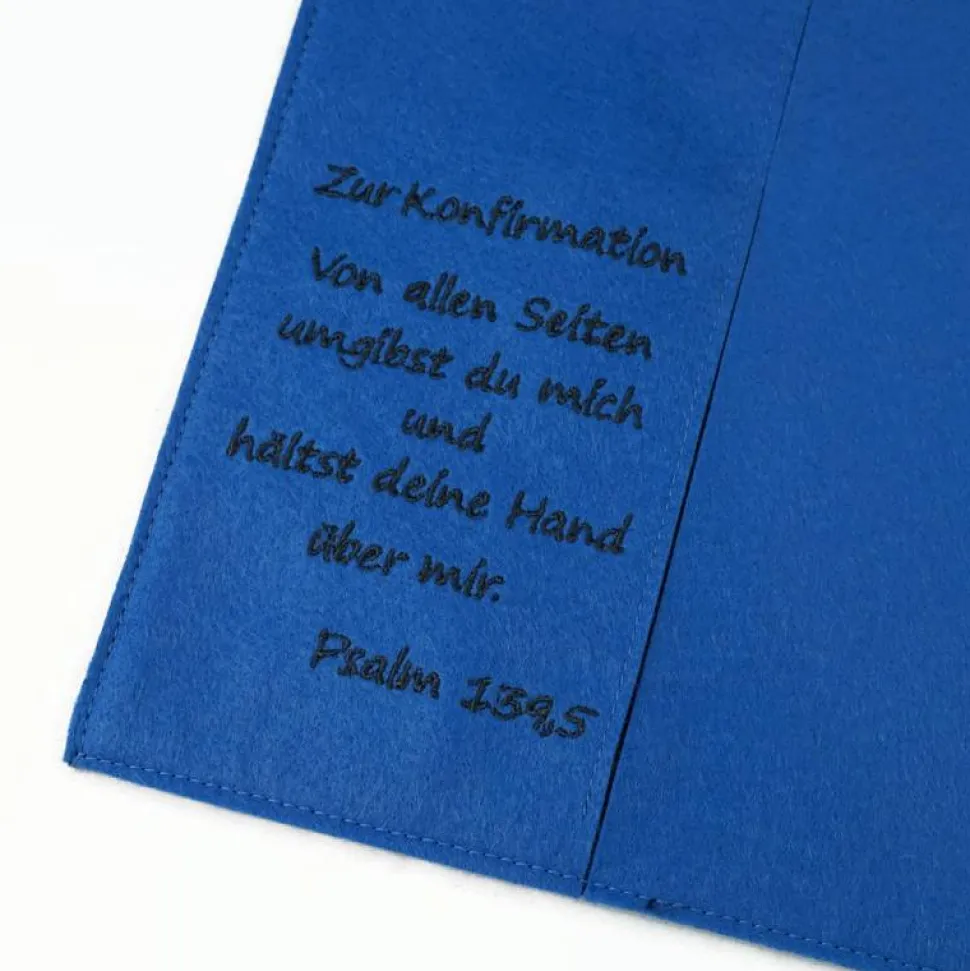 Zur Konfirmation
Von allen Seiten
umgibst du mich
und
hältst deine Hand
über mir.
Psalm 139,5